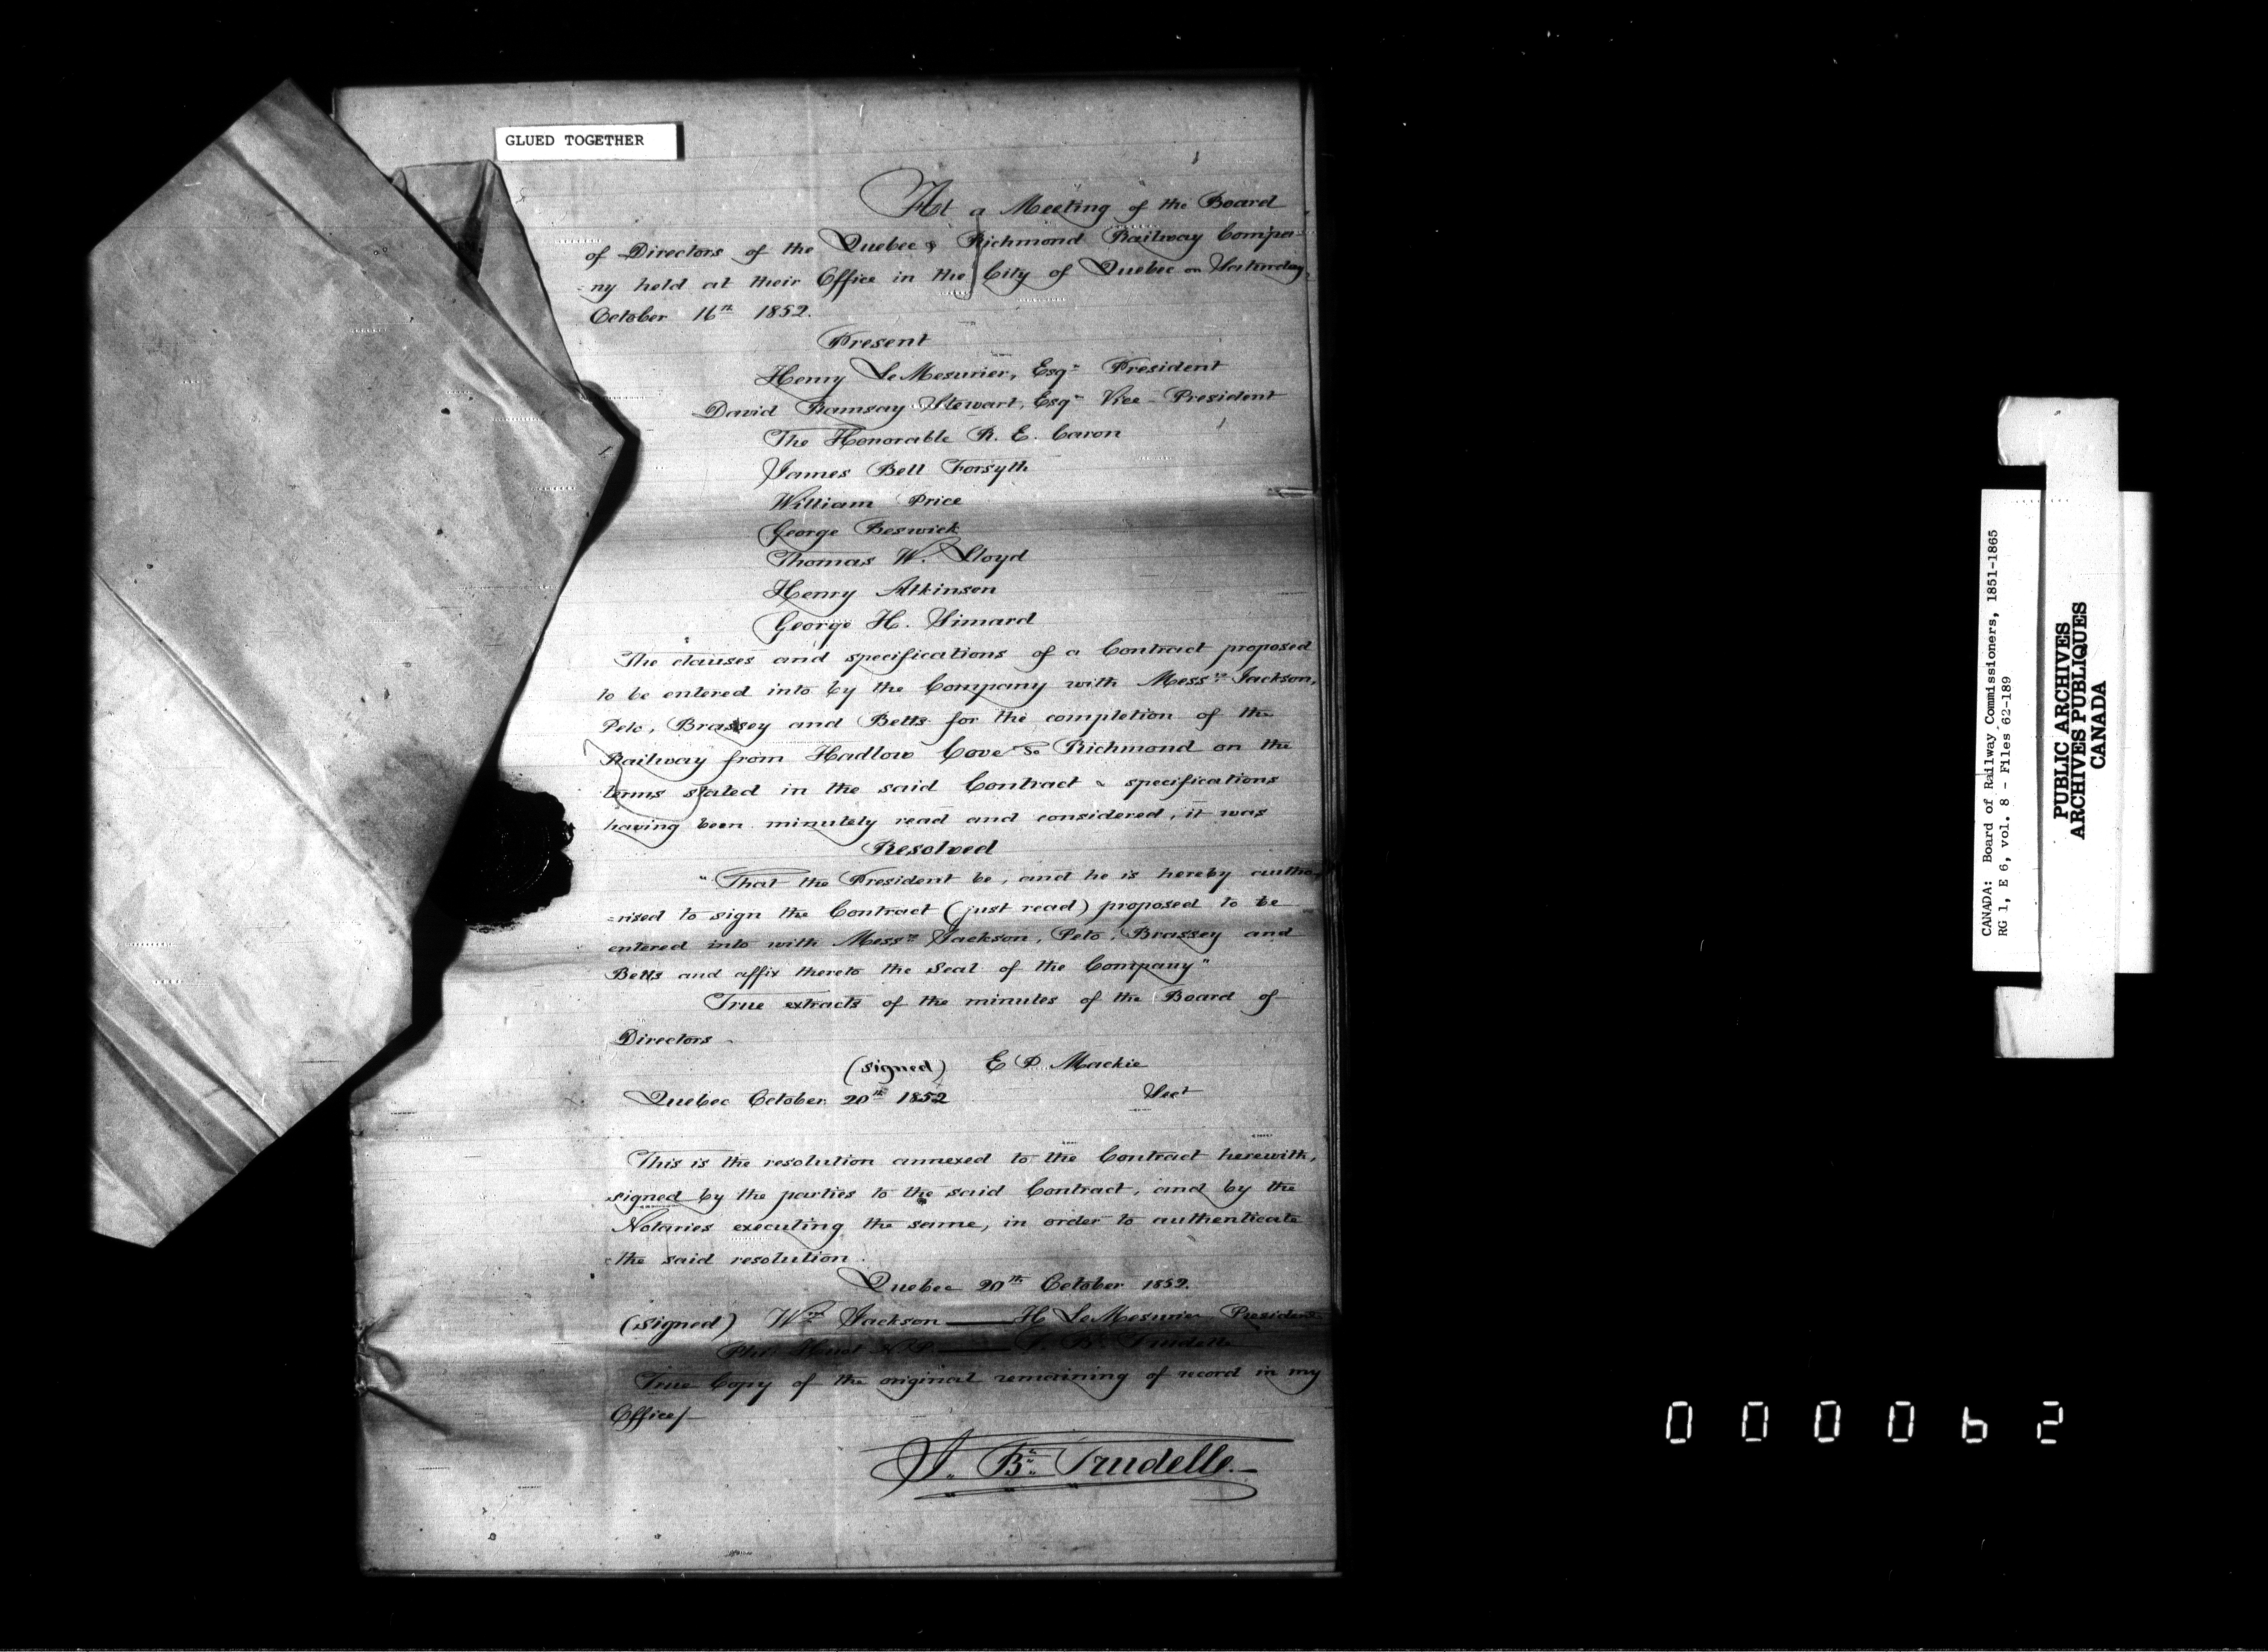 GLUED TOGETHER
At a Meeting of the Board
of Directors of the Quebec & Richmond Railway Compa-
-ny held at their Office in the City of Quebec on Saturday,
October 16th 1852.
Present
Henry LeMesurier, Esqr President
David Ramsay Stewart, Esqr Vice-President
The Honorable R. E. Caron
James Bell Forsyth
William Price
George Beswick
Thomas W. Lloyd
Henry Atkinson
George H. Simard
The clauses and specifications of a Contract proposed
to be entered into by the Company with Messrs Jackson,
Peto, Brassey and Betts for the completion of the
Railway from Hadlow Cove to Richmond on the
terms stated in the said Contract & specifications
having been minutely read and considered, it was
Resolved
"That the President be, and he is hereby autho-
-rised to sign the Contract (just read) proposed to be
entered into with Messrs Jackson, Peto, Brassey and
Betts and affix thereto the Seal of the Company"
True extracts of the minutes of the Board of
Directors
(signed) E P Mackie
Quebec October 20th 1852 Sect
This is the resolution annexed to the Contract herewith,
signed by the parties to the said Contract, and by the
Notaries executing the same, in order to authenticate
the said resolution.
Quebec 20th October 1852.
(signed) Wm Jackson — H LeMesurier President
Huot N.P. — J. Bte Trudelle
True Copy of the original remaining of record in my
Office/-
J. Bte Trudelle
CANADA: Board of Railway Commissioners, 1851-1865
RG 1, E 6, vol. 8 - Files 62-189
PUBLIC ARCHIVES
ARCHIVES PUBLIQUES
CANADA
000062